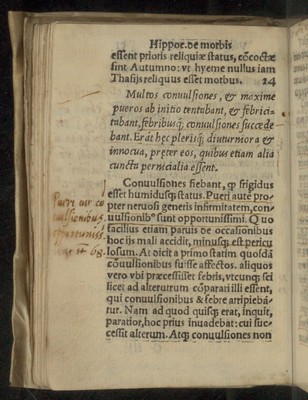 Hippoc. de morbis
essent prioris reliquiæ status, cōcoctæ
sint Autumno: vt hyeme nullus iam
Thasijs reliquus esset motbus. 24
Multos conuulsiones, & maxime
pueros ab initio tentabant, & febrici-
tabant, febribusq; conuulsiones succede
bant. Erāt hęc plerisq; diuturniora &
innocua, pręter eos, quibus etiam alia
cuncta pernicialia essent.
Conuulsiones fiebant, ꝙ frigidus
esset humidusq; status. Pueri aute pro-
pter neruosi generis infirmitatem, con-
uulsionib⁹ sunt opportunissimi. Quo
facilius etiam paruis de occasionibus
hoc ijs mali accidit, minusq; est pericu
losum. At dicit a primo statim quosdā
cōuulsionibus fuisse affectos. aliquos
vero vbi præcessisset febris, vtcunq; sci
licet ad alterutrum cōparati illi essent,
qui conuulsionibus & febre arripiebā-
tur. Nam ad quod quisq; erat, inquit,
paratior, hoc prius inuadebat: cui suc-
cessit alterum. Atq; conuulsiones non
Pueri cur co
uulsionibus
opportuniss.
68.